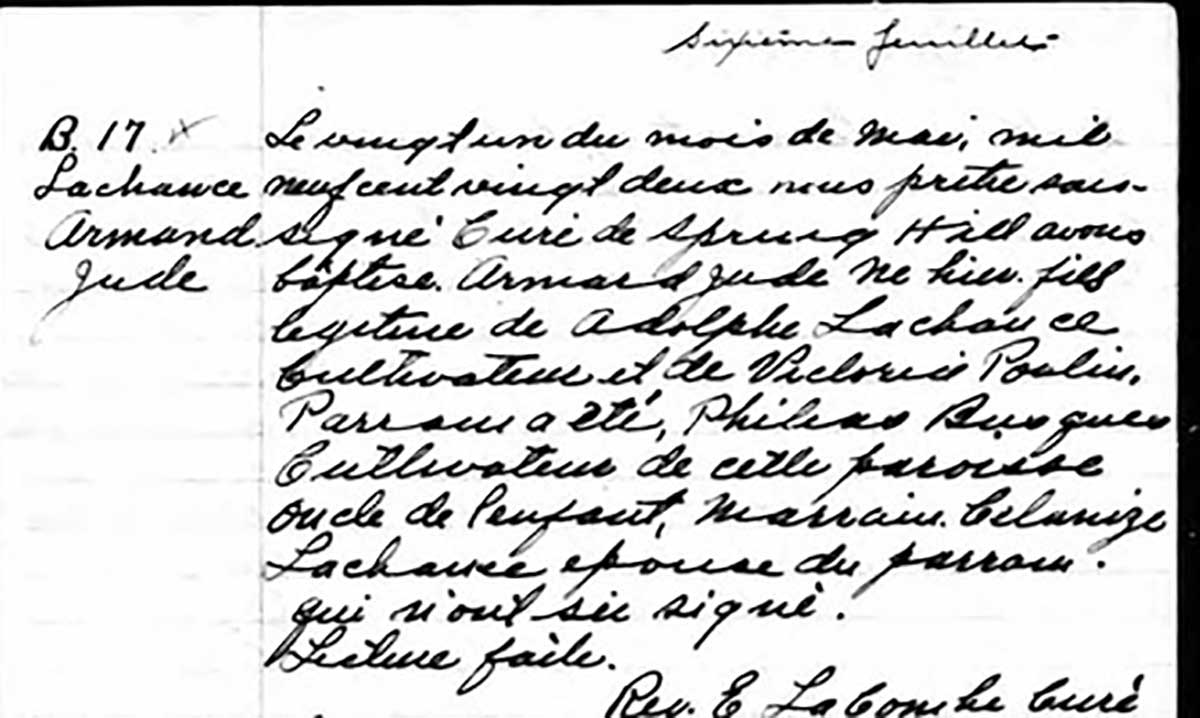 Sixième feuillet
B. 17 x
Lachance
Armand
Jude
Le vingt un du mois de Mai, mil
neuf cent vingt deux nous prêtre sous-
signé Curé de Spring Hill avons
baptisé. Armand Jude né hier. fils
legitime de Adolphe Lachance
Cultivateur et de Victorie Poulin.
Parrain a été, Phileas Busques
Cultivateur de cette paroisse
oncle de l'enfant, Marraine. Celanize
Lachance epouse du parrain.
qui n'ont su signé.
Lecture faite.
Rev. E LaCombe Curé